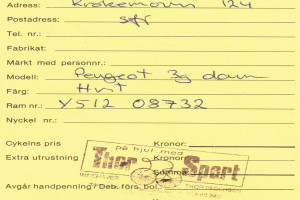 Adress: Krokemovn 124
Postadress: sgfr
Tel. nr.:
Fabrikat:
Märkt med personnr.:
Modell: Peugeot 3g dam
Färg: Hvit
Ram nr.: Y512 08732
Nyckel nr.:
Cykelns pris Kronor:
på hjul med
Extra utrustning Kronor:
Thor Sport
Summa
Avgår handpenning / Deb. förs. bol.: